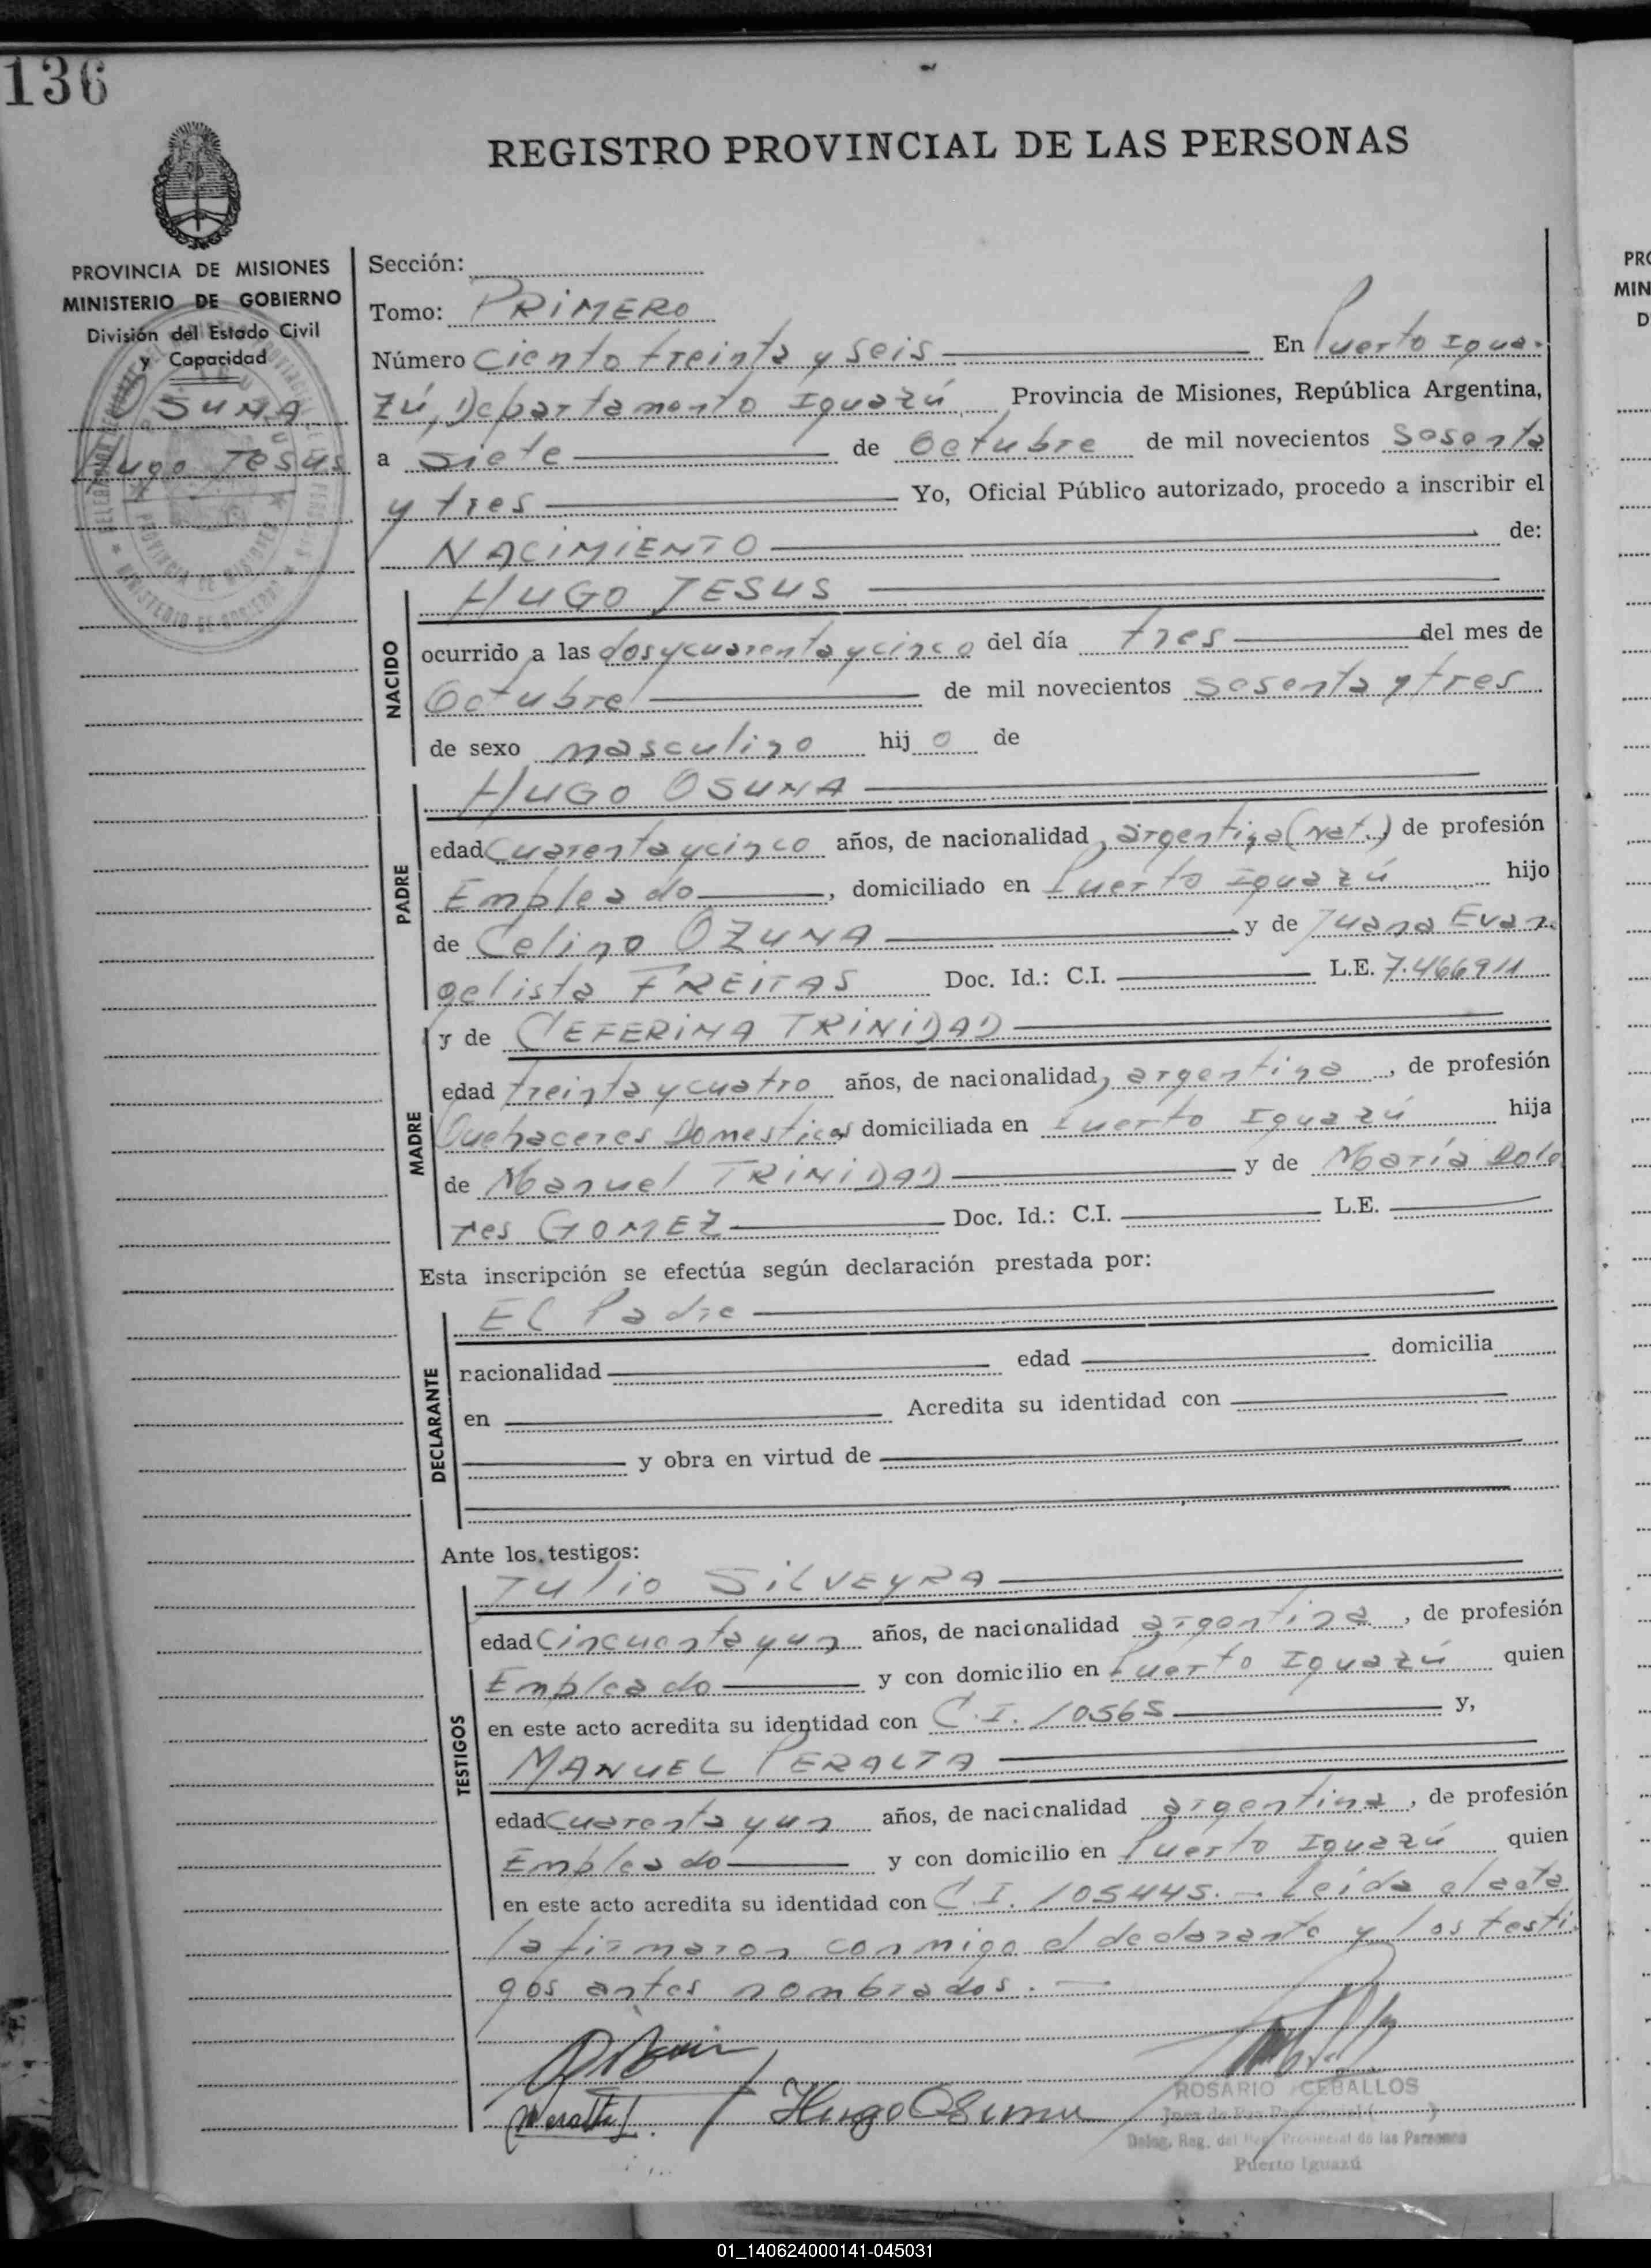 136
REGISTRO PROVINCIAL DE LAS PERSONAS
PROVINCIA DE MISIONES
MINISTERIO DE GOBIERNO
División del Estado Civil
y Capacidad
OSUNA
Hugo Jesús
Sección:
Tomo: PRIMERO
Número Ciento treinta y seis En Puerto Igua-
zú, Departamento Iguazú, Provincia de Misiones, República Argentina,
a siete de Octubre de mil novecientos Sesenta
y tres Yo, Oficial Público autorizado, procedo a inscribir el
NACIMIENTO de:
NACIDO
HUGO JESUS
ocurrido a las dos y cuarenta y cinco del día tres del mes de
Octubre de mil novecientos sesenta y tres
de sexo masculino hijo de
PADRE
HUGO OSUNA
edad Cuarenta y cinco años, de nacionalidad argentina (nat.) de profesión
Empleado, domiciliado en Puerto Iguazú hijo
de Celino OZUNA y de Juana Evan
gelista FREITAS Doc. Id.: C.I. L.E. 7.466911
MADRE
y de CEFERINA TRINIDAD
edad treinta y cuatro años, de nacionalidad argentina, de profesión
Quehaceres Domesticos domiciliada en Puerto Iguazú hija
de Manuel TRINIDAD y de María Dolo
res GOMEZ Doc. Id.: C.I. L.E.
Esta inscripción se efectúa según declaración prestada por:
DECLARANTE
El Padre
nacionalidad edad domicilia
en Acredita su identidad con
y obra en virtud de
Ante los testigos:
TESTIGOS
Julio SILVEYRA
edad Cincuenta y un años, de nacionalidad argentina, de profesión
Empleado y con domicilio en Puerto Iguazú quien
en este acto acredita su identidad con C.I. 10565 y,
MANUEL PERALTA
edad Cuarenta y un años, de nacionalidad argentina, de profesión
Empleado y con domicilio en Puerto Iguazú quien
en este acto acredita su identidad con C.I. 105445. - Leida el acta
la firmaron conmigo el declarante y los testi
gos antes nombrados.
Hugo Osuna
ROSARIO CEBALLOS
Deleg. Reg. del Reg. Provincial de las Personas
Puerto Iguazú
01_140624000141-045031